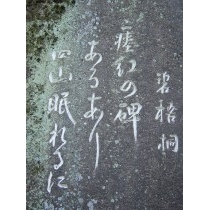 碧梧桐
痩幻の碑
あるあり
四山眠れるに